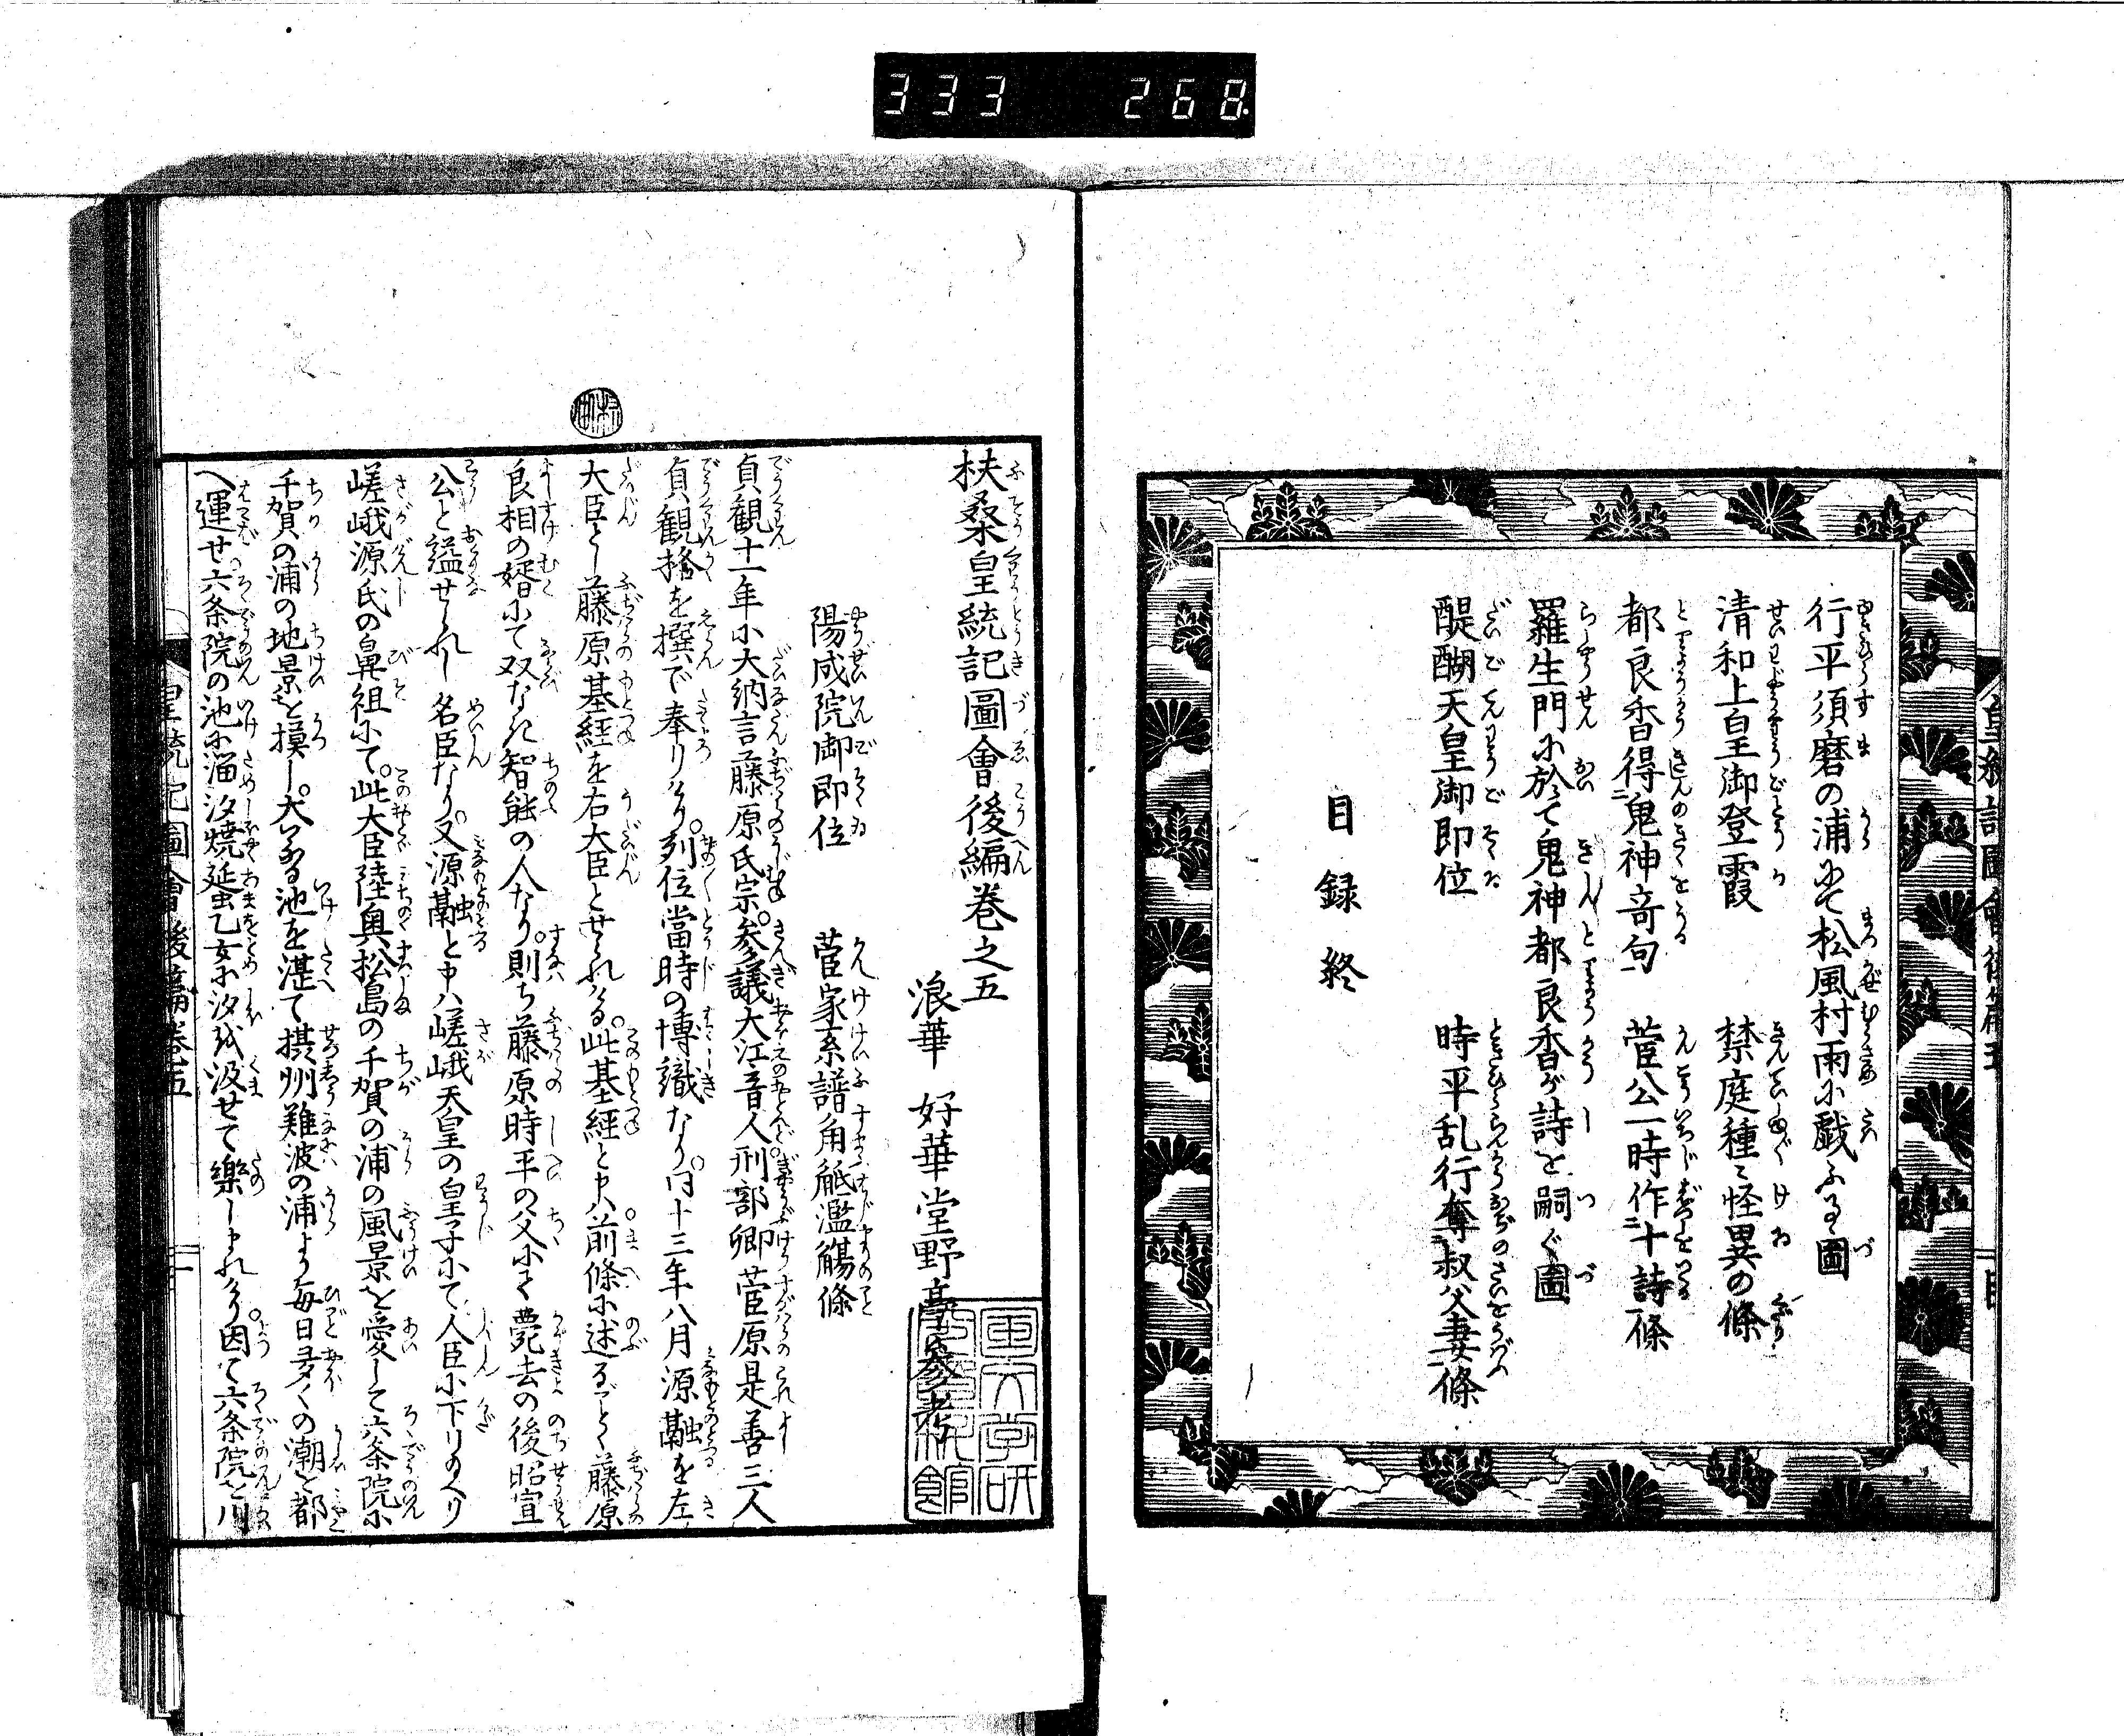 333 268
行平須磨の浦にて松風村雨に戯ふる圖
清和上皇御登霞 禁庭種々怪異の條
都良香得鬼神竒句 菅公一時作二十詩條
羅生門に於て鬼神都良香が詩を嗣ぐ圖
醍醐天皇御即位 時平乱行奪叔父妻條
目録終
扶桑皇統記圖會後編巻之五
浪華 好華堂野亭参考
陽成院御即位 菅家系譜角觝濫觴條
貞観十一年に大納言藤原氏宗。参議大江音人。刑部卿菅原是善三人
貞観格を撰で奉りけり。列位當時の博識なり。同十三年八月源融を左
大臣とし藤原基経を右大臣とせられける。此基経と申は前條に述るごとく藤原
良相の婿にて双なき智能の人なり。則ち藤原時平の父にて薨去の後昭宣
公と謚せられし名臣なり。又源融と申は嵯峨天皇の皇子にて人臣に下り
嵯峨源氏の鼻祖にて。此大臣陸奥松島の千賀の浦の風景を愛して六条院に
千賀の浦の地景を摸し。大いなる池を湛て摂州難波の浦より毎日多くの潮を都
へ運せ六条院の池に溜汐焼蜑乙女に汐を汲せて樂しまれけり。因て六条院を川
皇統記圖會後篇巻五